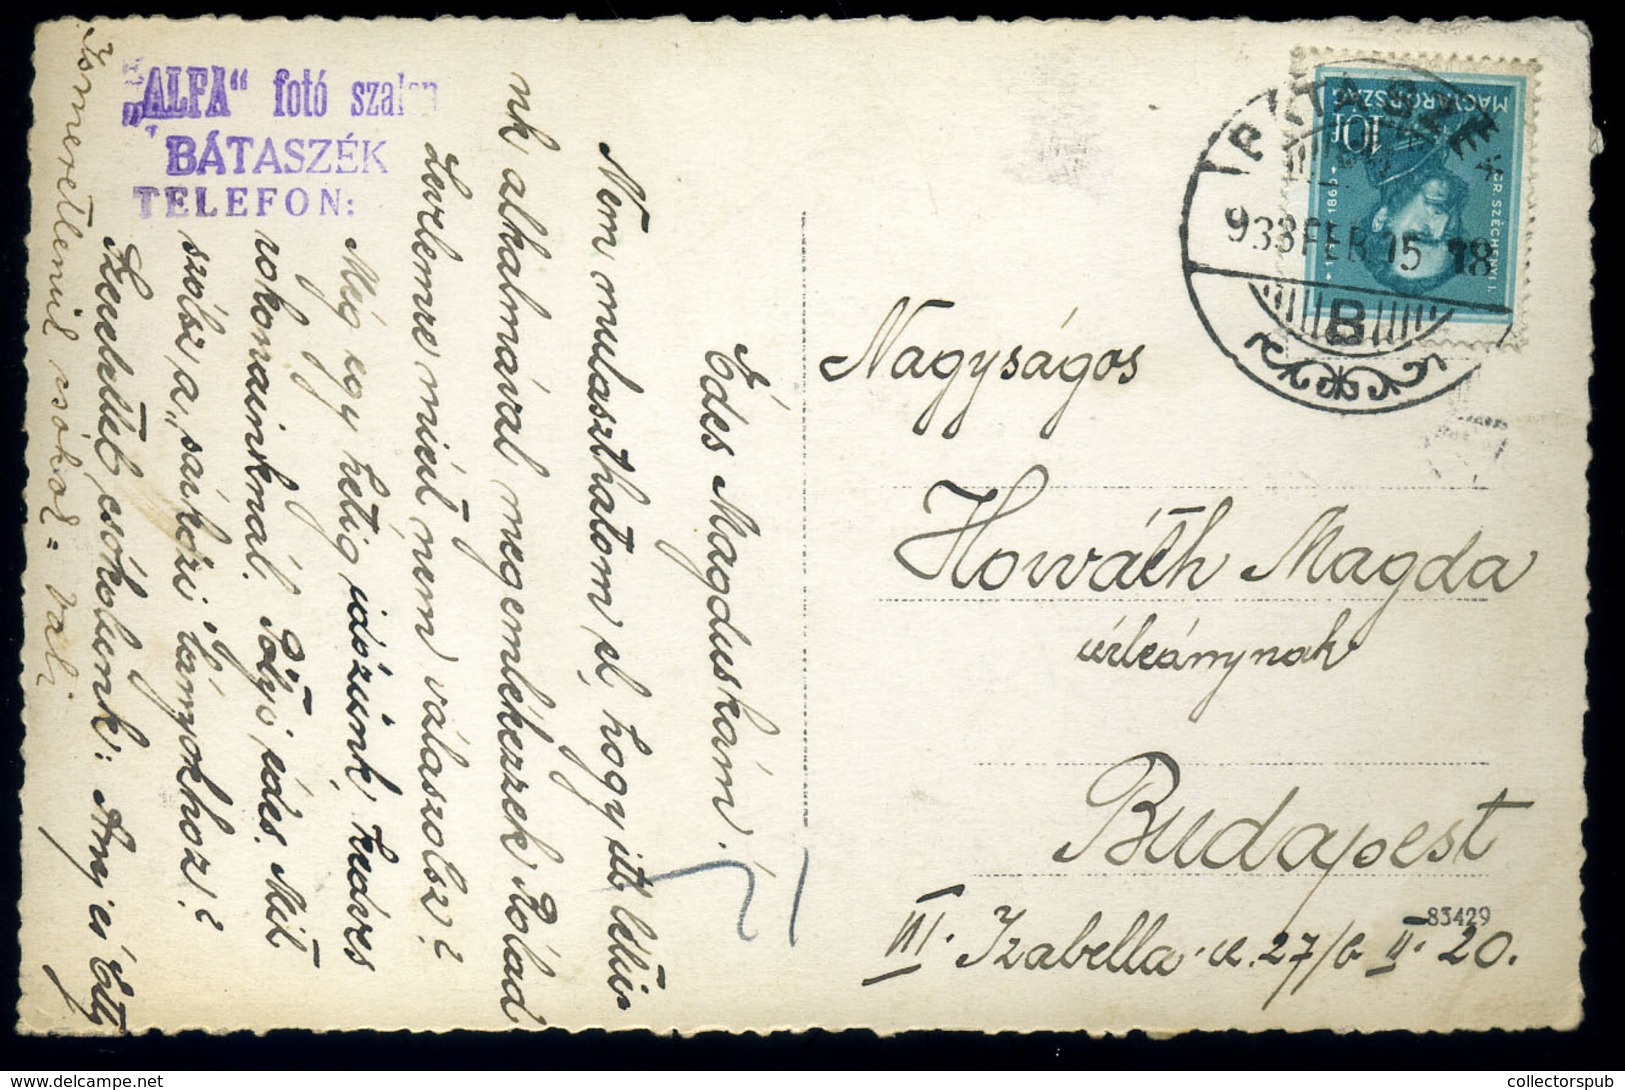 „ALFA“ fotó szalon
BÁTASZÉK
TELEFON:
Édes Magduskám!
Nem mulaszthatom el, hogy itt létün-
nk alkalmával megemlékezzek Rólad
Levelemre miért nem válaszolsz?
Még egy hétig időzünk kedves
rokonainknál. édes. Mit
szólsz a „sárközi lányokhoz?
Szeretettel csókolunk: Anyj és Etty
Ismeretlenül csókol = Vali
MAGYARORSZÁG
10f
GR. SZÉCHENYI I.
1860
BÁTASZÉK
938 FEB 15 18
B
Nagyságos
Howáth Magda
úrleánynak
Budapest
VI. Izabella u. 27/b II. 20.
83429
collectorspub